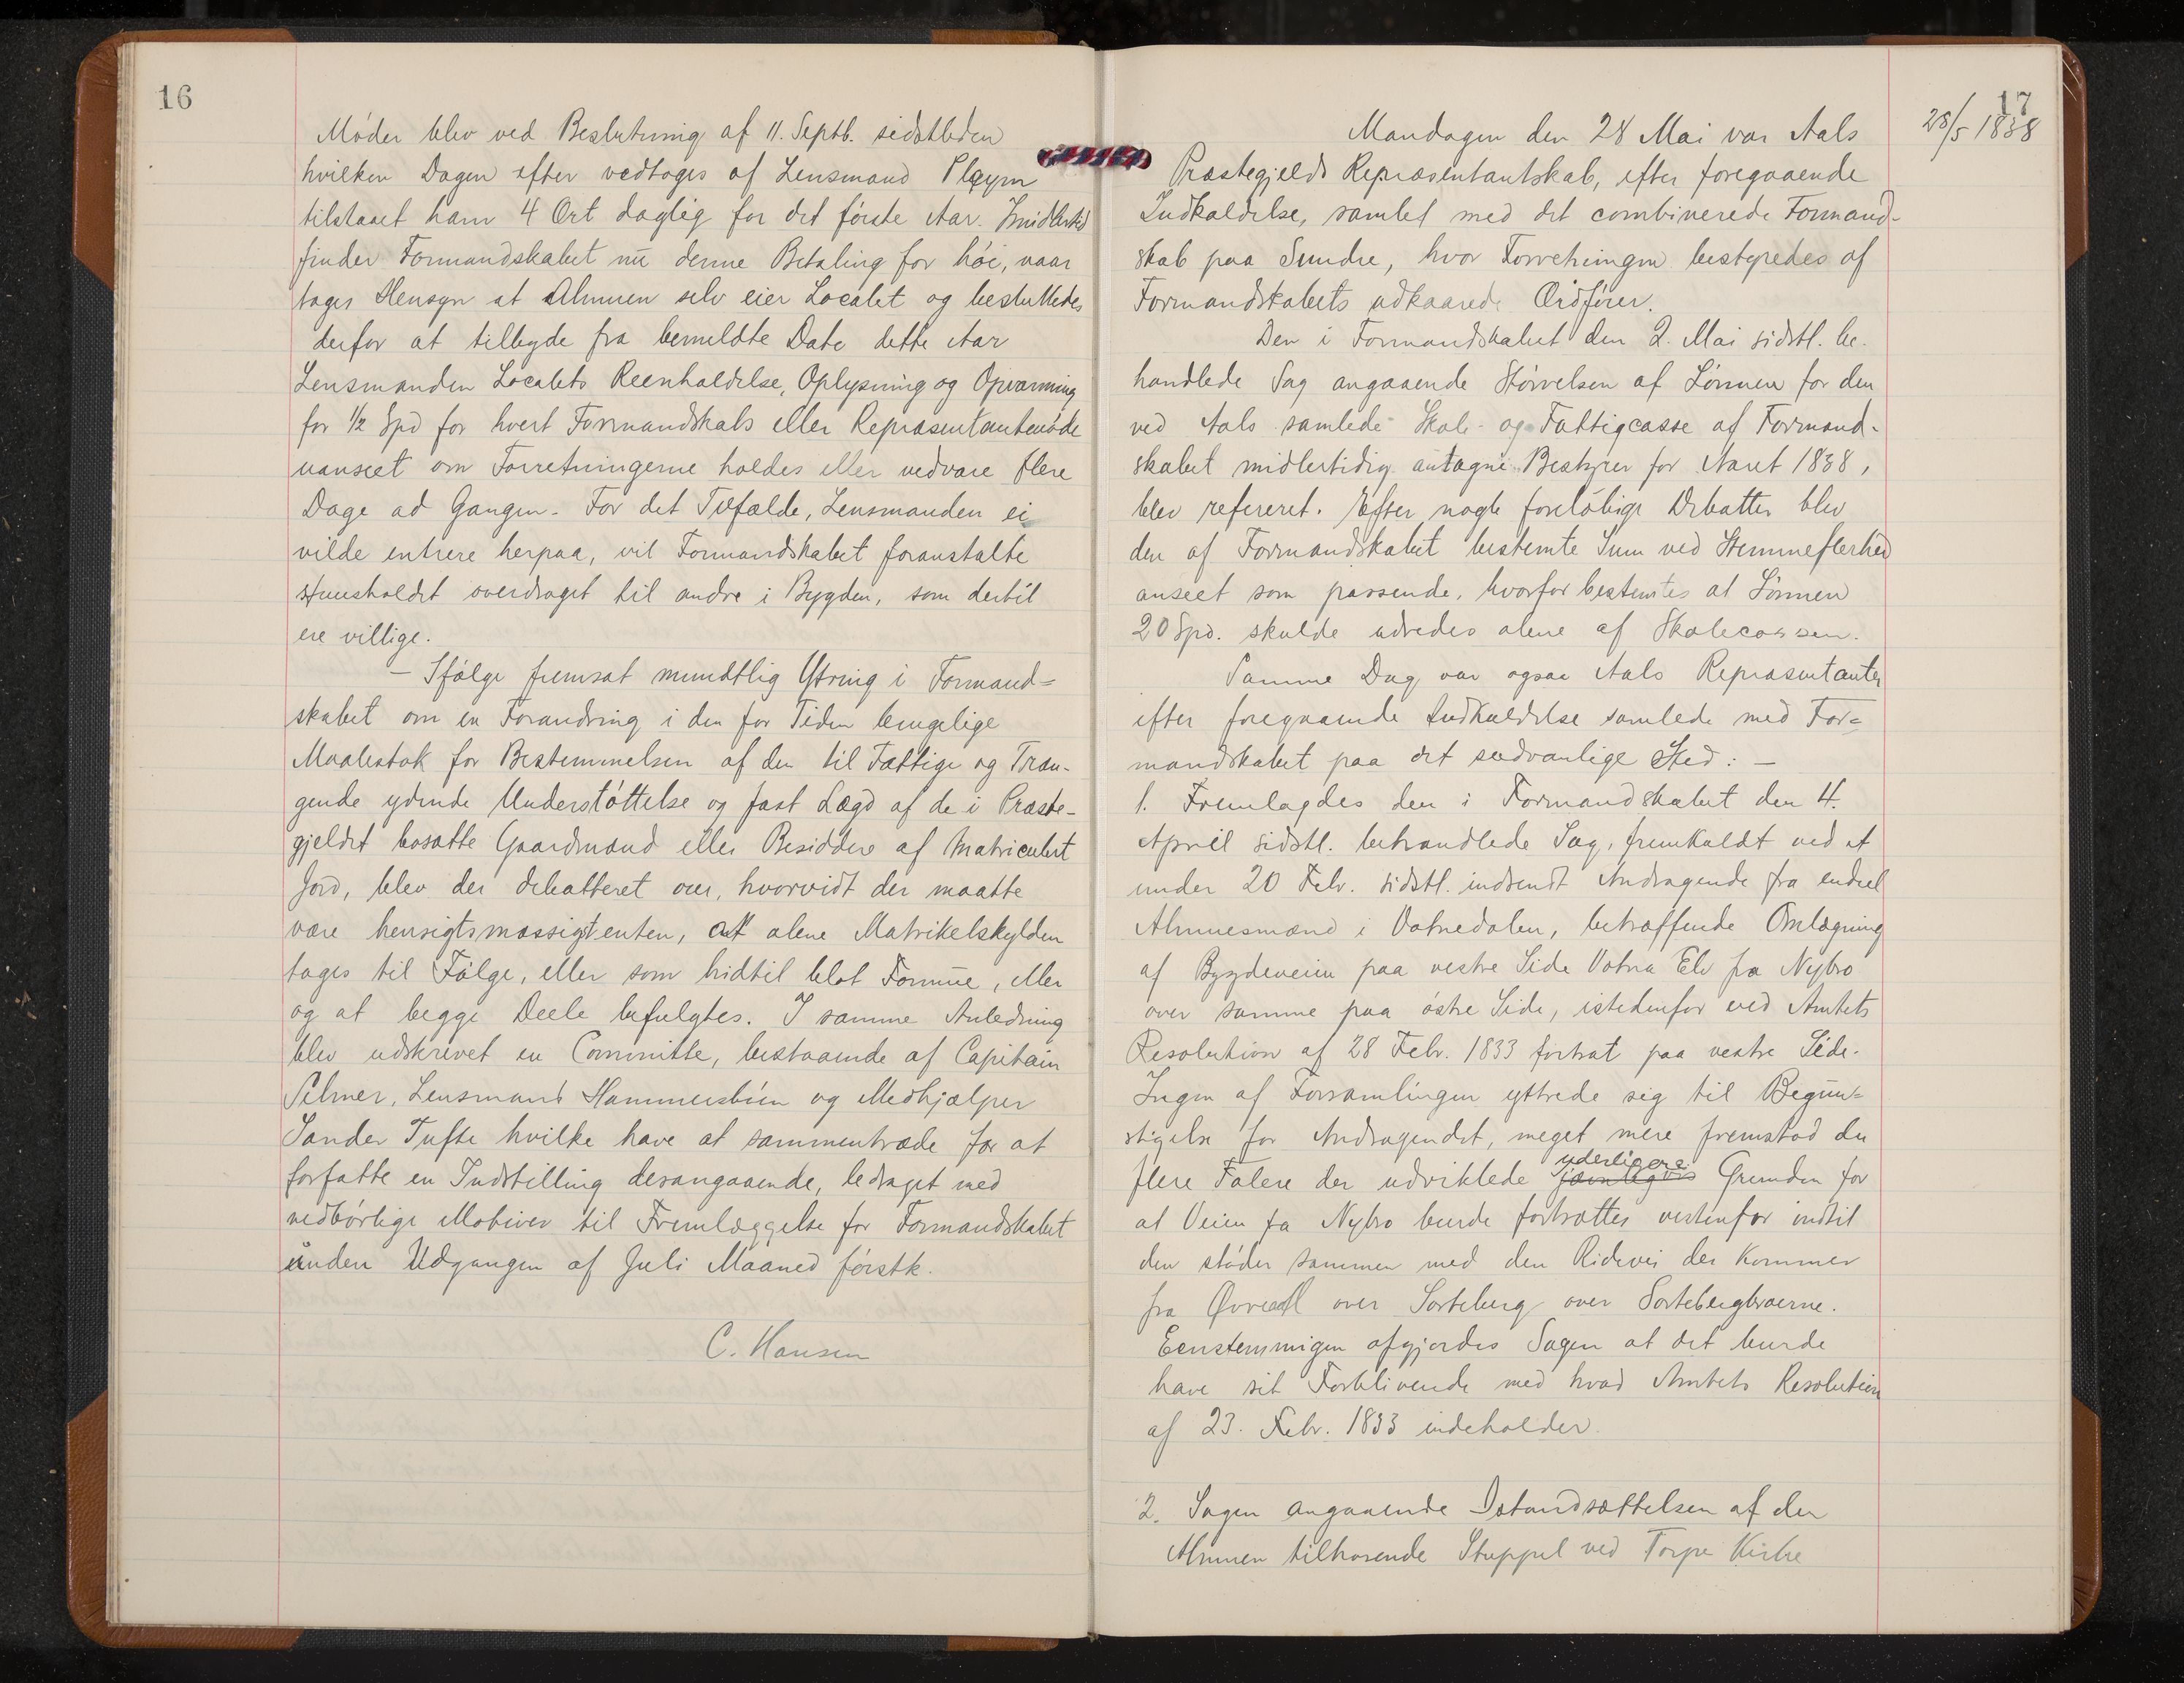 16
Møder blev ved Beslutning af 11. Septb. sidstleden
hvilken Dagen efter vedtoges af Lensmand Pleym
tilstaaet ham 4 Ort daglig for det første Aar. Imidlertid
finder Formandskabet nu denne Betaling for høi, naar
tages Hensyn at Almuen selv eier Localet og besluttedes
derfor at tilbyde fra bemeldte Dato dette Aar
Lensmanden Localets Reenholdelse, Oplysning og Opvarmning
for ½ Spd for hvert Formandskabs eller Repræsentantmøde
uanseet om Forretningerne holdes eller vedvare flere
Dage ad Gangen. For det Tilfælde, Lensmanden ei
vilde entrere herpaa, vil Formandskabet foranstalte
Huusholdet overdraget til andre i Bygden, som dertil
ere villige.
– Ifølge fremsat mundtlig Ytring i Formand=
skabet om en Forandring i den for Tiden brugelige
Maalestok for Bestemmelsen af den til Fattige og Træn-
gende ydende Understøttelse og fast Lægd af de i Præste-
gjeldet bosatte Gaardmænd eller Besiddere af Matriculert
Jord, blev der debatteret over, hvorvidt der maatte
være hensigtsmæssigt enten, at alene Matrikelskylden
tages til Følge, eller som hidtil blot Formue, eller
og at begge Deele befulgtes. I samme Anledning
blev udskrevet en Committe, bestaaende af Capitain
Selmer, Lensmand Hammersbøen og Medhjælper
Sander Tufte hvilke have at sammentræde for at
forfatte en Indstilling desangaaende, ledsaget med
vedbørlige Motiver til Fremlæggelse for Formandskabet
inden Udgangen af Juli Maaned førstk.
C. Hansen
17
28/5 1838
Mandagen den 28 Mai var Aals
Præstegjelds Repræsentantskab, efter foregaaende
Indkaldelse, samlet med det combinerede Formand-
skab paa Sundre, hvor Forretningen bestyredes af
Formandskabets udkaarede Ordfører.
Den i Formandskabet den 2. Mai sidstl. be-
handlede Sag angaaende Størrelsen af Lønnen for den
ved Aals samlede Skole- og Fattigcasse af Formand-
skabet midlertidig antagne Bestyrer for Aaret 1838,
blev refereret. Efter nogle foreløbige Debatter blev
den af Formandskabet bestemte Sum ved Stemmeflerhed
anseet som passende, hvorfor bestemtes at Lønnen
20 Spd. skulde udredes alene af Skolecassen.
Samme Dag var ogsaa Aals Repræsentanter
efter foregaaende Indkaldelse samlede med For=
mandskabet paa det sædvanlige Sted: –
1. Fremlagdes den i Formandskabet den 4.
April sidstl. behandlede Sag, fremkaldt ved et
under 20 Febr. sidstl. indsendt Andragende fra endeel
Almuesmænd i Votnedalen, betræffende Omlægning
af Bygdeveien paa vestre Side Votna Elv fra Nybro
over samme paa østre Side, istedenfor ved Amtets
Resolution af 28 Febr. 1833 fortsat paa vestre Side.
Ingen af Forsamlingen yttrede sig til Begun=
stigelse for Andragendet, meget mere fremstod der
flere Talere der udviklede yderligere Grunden for
at Veien fra Nybro burde fortsættes vestenfor indtil
den støder sammen med den Ridevei der kommer
fra Øvreaal over Sorteberg over Sortebergbroerne.
Eenstemmigen afgjordes Sagen at det burde
have sit Forblivende med hvad Amtets Resolution
af 23. Febr. 1833 indeholder.
2. Sagen angaaende Istandsættelsen af den
Almuen tilhørende Støppel ved Torpe Kirke